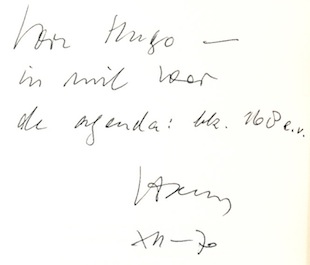 Voor Hugo —
in ruil voor
de agenda: blz. 168 e.v.
XII–70